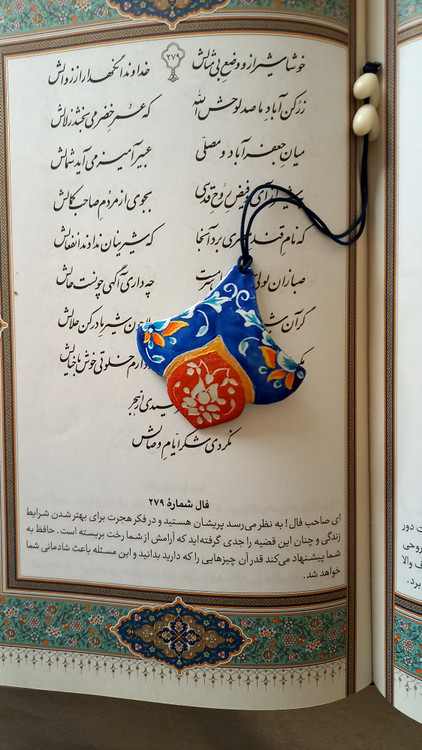 ۲۷۹
خوشا شیراز و وضع بی‌مثالش خداوندا نگهدار از زوالش
ز رکن آباد ما صد لوحش الله که عمر خضر می‌بخشد زلالش
میان جعفرآباد و مصلی عبیرآمیز می‌آید شمالش
فیض روح قدسی بجوی از مردم صاحب کمالش
که نام قند برد آنجا که شیرینان ندادند انفعالش
صبا زان لولی چه داری آگهی چونست حالش
گر آن شیر مادر کن حلالش
دارم خلوتی خوش با خیالش
از هجر
نکردی شکر ایام وصالش
فال شمارهٔ ۲۷۹
ای صاحب فال! به نظر می‌رسد پریشان هستید و در فکر هجرت برای بهتر شدن شرایط
زندگی و چنان این قضیه را جدی گرفته‌اید که آرامش از شما رخت بربسته است. حافظ به
شما پیشنهاد می‌کند قدر آن چیزهایی را که دارید بدانید و این مسئله باعث شادمانی شما
خواهد شد.
دور
روحی
والا
برد.